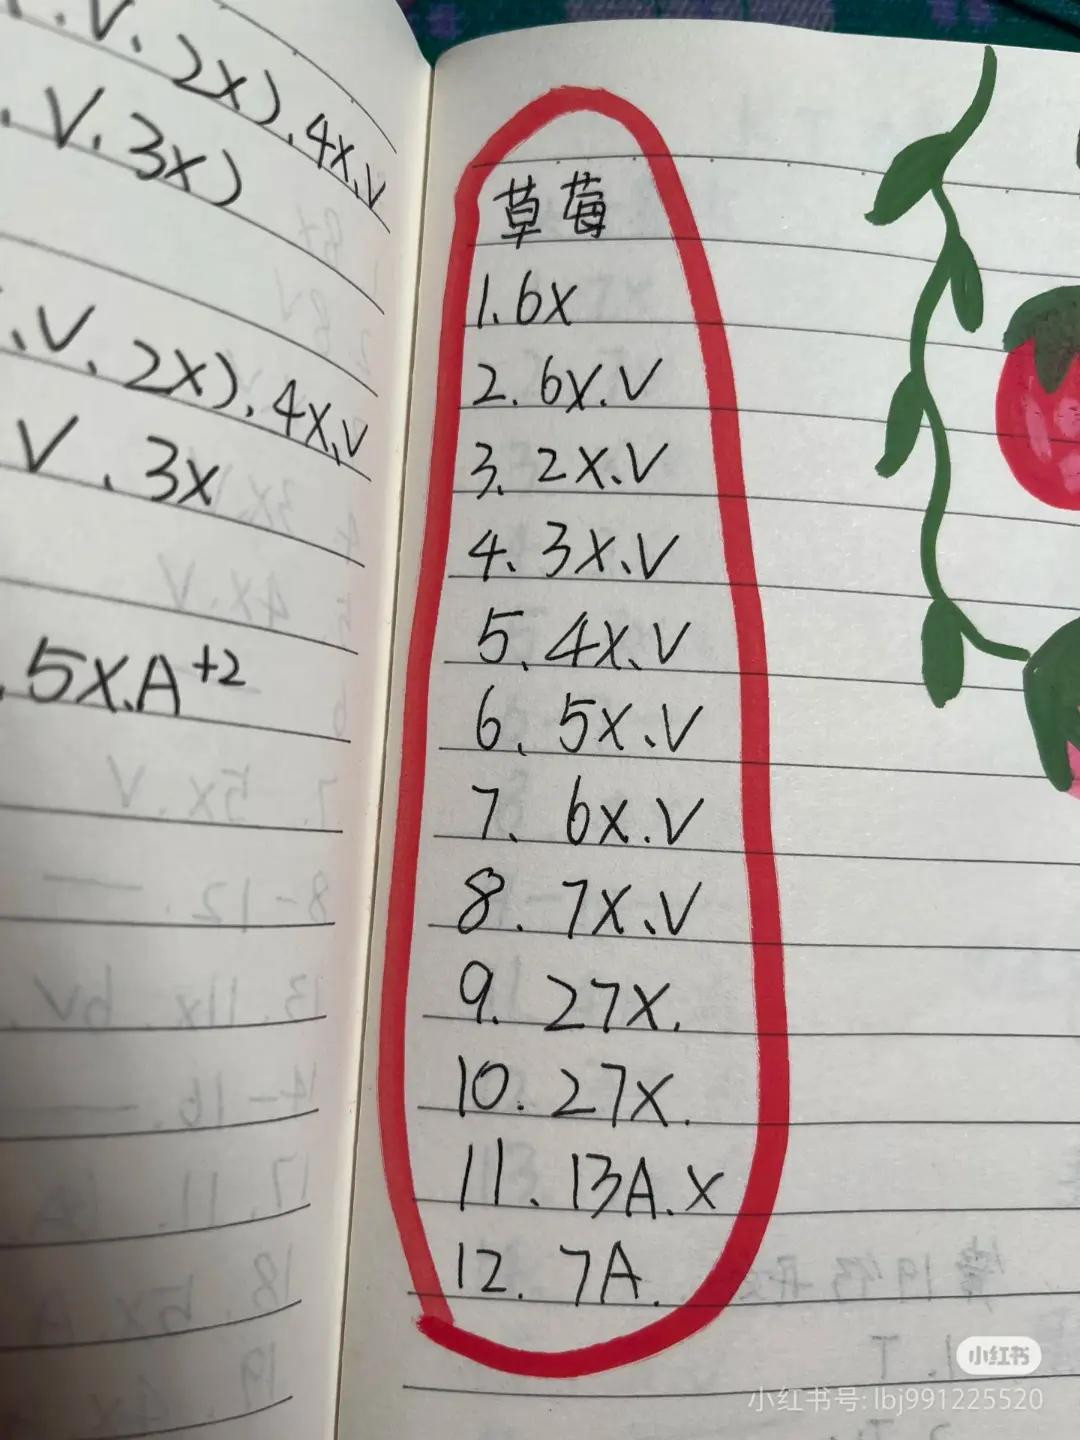 .V、2X).4X、V
.V、3X)
、V、2X).4X、V
V、3X
.5X、A+2
草莓
1.6X
2.6X.V
3、2X、V
4、3X、V
5、4X、V
6、5X、V
7、6X.V
8.7X、V
9.27X.
10.27X.
11、13A.X
12.7A.
小红书
小红书号: lbj991225520